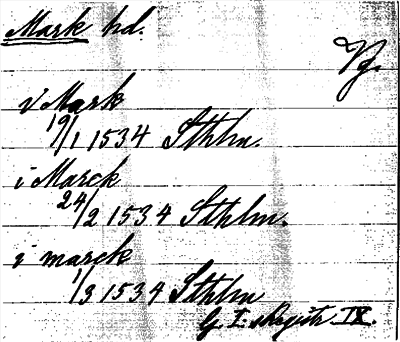 Mark hd.
Vg.
i Mark
19/1 1534 Sthlm.
i Marck
24/2 1534 Sthlm.
i marck
1/3 1534 Sthlm
G I:s regist. IX.